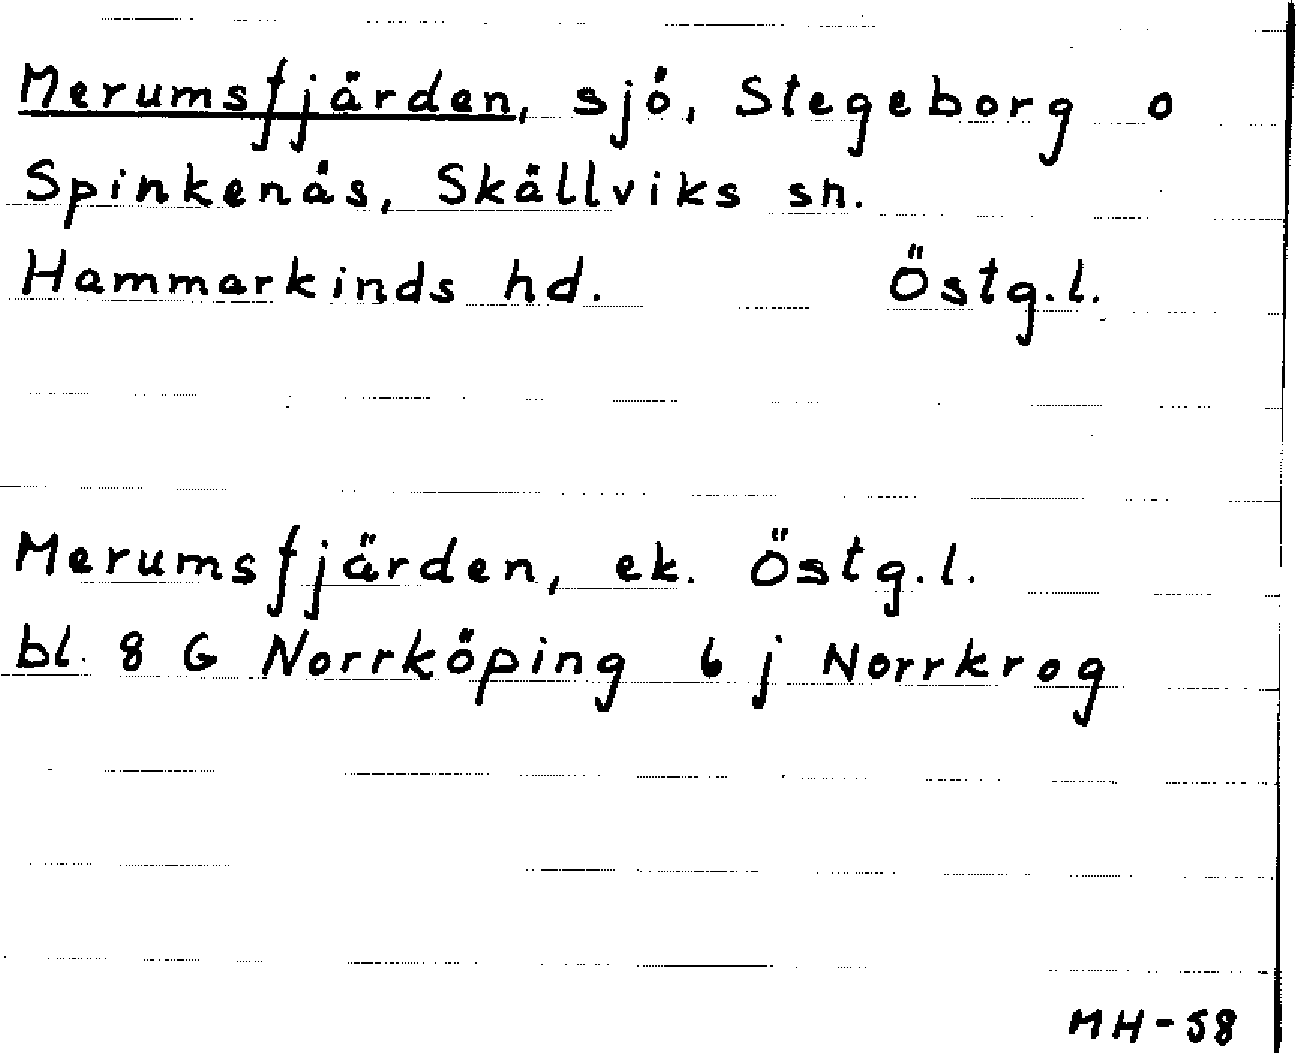 Merumsfjärden, sjö, Stegeborg o
Spinkenäs, Skällviks sn.
Hammarkinds hd. Östg.l.
Merumsfjärden, ek. Östg.l.
bl. 8 G Norrköping 6 j Norrkrog
MH-58